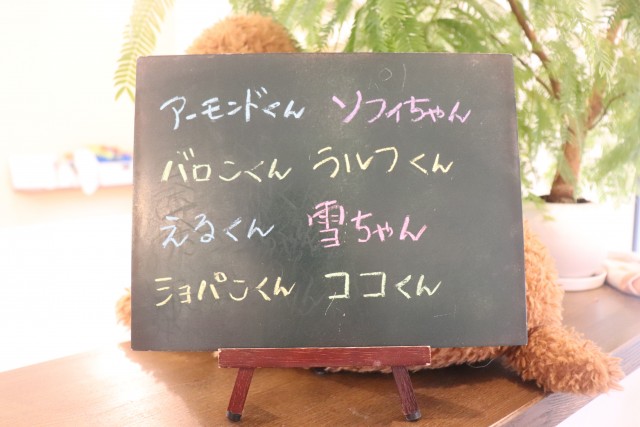 アーモンドくん ソフィちゃん
バロンくん ラルフくん
えるくん 雪ちゃん
ショパンくん ココくん